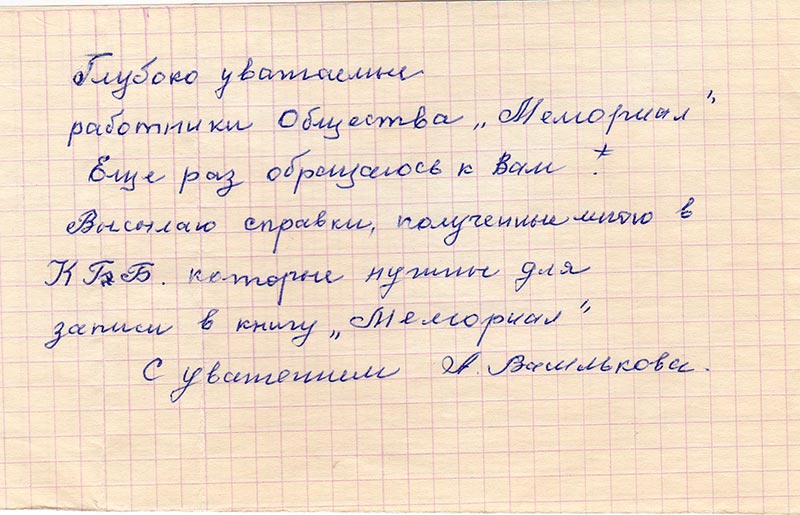 Глубоко уважаемые
работники Общества „Мемориал"
Еще раз обращаюсь к Вам!
Высылаю справки, полученные мною в
КГБ. которые нужны для
записи в книгу „Мемориал"
С уважением А.